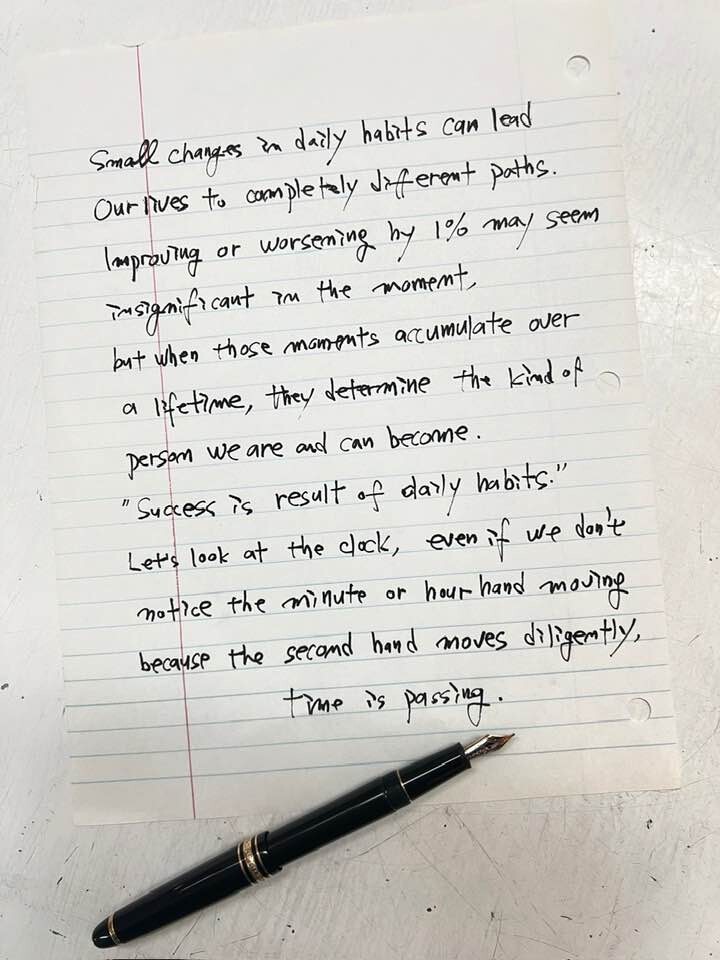 Small changes in daily habits can lead
Our lives to completely different paths.
Improving or worsening by 1% may seem
insignificant in the moment,
but when those moments accumulate over
a lifetime, they determine the kind of
person we are and can become.
"Success is result of daily habits."
Let's look at the clock, even if we don't
notice the minute or hour hand moving
because the second hand moves diligently,
time is passing.